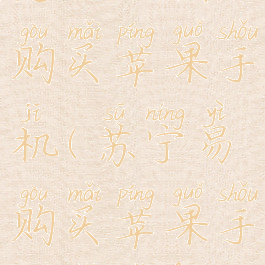 gòu mǎi píng guǒ shǒu
购买苹果手
jī ( sū níng yì
机(苏宁易
gòu mǎi píng guǒ shǒu
购买苹果手